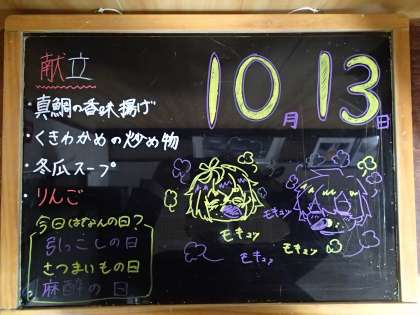 献立
・真鯛の香味揚げ
・くきわかめの炒め物
・冬瓜スープ
・りんご
今日はなんの日?
引っこしの日
さつまいもの日
麻酔の日
10月13日
モキュッ
モキュッ
モキュッ
モキュッ